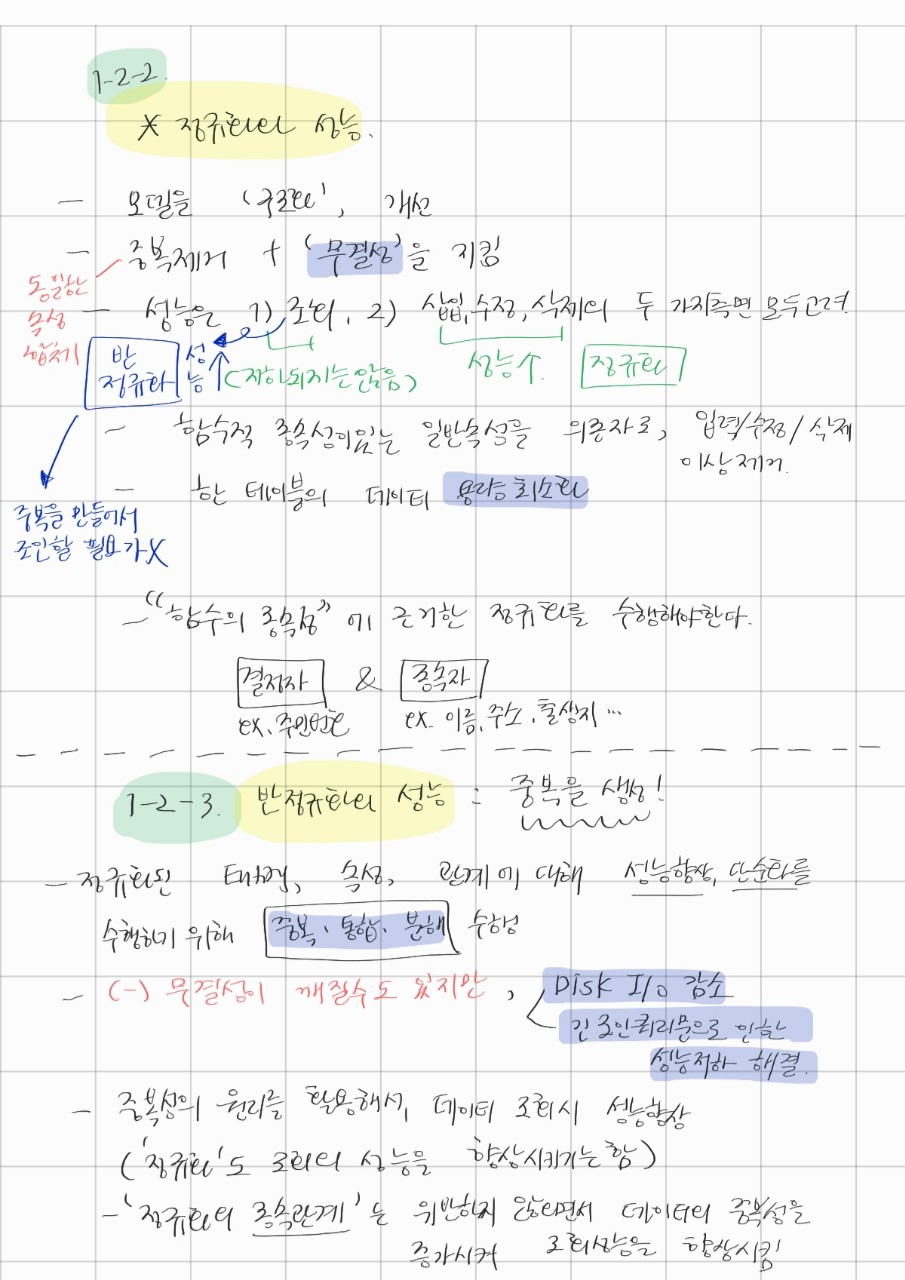 1-2-2.
* 정규화의 성능.
- 모델을 '구조화', 개선
- 중복제거 + '무결성'을 지킴
동일한
속성
없제거
- 성능은 1) 조회, 2) 삽입, 수정, 삭제의 두 가지측면 모두고려.
반
정규화
성
능↑
(저하되지는않음)
성능↑.
정규화
- 함수적 종속성이있는 일반속성을 의존자로, 입력/수정/삭제
이상제거.
- 한 테이블의 데이터 용량을 최소화
중복을 만들어서
조인할 필요가X
- "함수의 종속성"에 근거한 정규화를 수행해야한다.
결정자 & 종속자
ex. 주민번호 ex. 이름, 주소, 출생지 ...
1-2-3. 반정규화의 성능 : 중복을 생성!
- 정규화된 엔터티, 속성, 관계에 대해 성능향상, 단순화를
수행하기 위해 중복, 통합, 분해 수행
- (-) 무결성이 깨질수도 있지만, Disk I/O 감소
긴 조인쿼리문으로 인한
성능저하 해결.
- 중복성의 원리를 활용해서, 데이터 조회시 성능향상
('정규화'도 조회의 성능을 향상시키기는함)
- '정규화의 종속관계'는 위반하지 않으면서 데이터의 중복성을
증가시켜 조회성능을 향상시킴